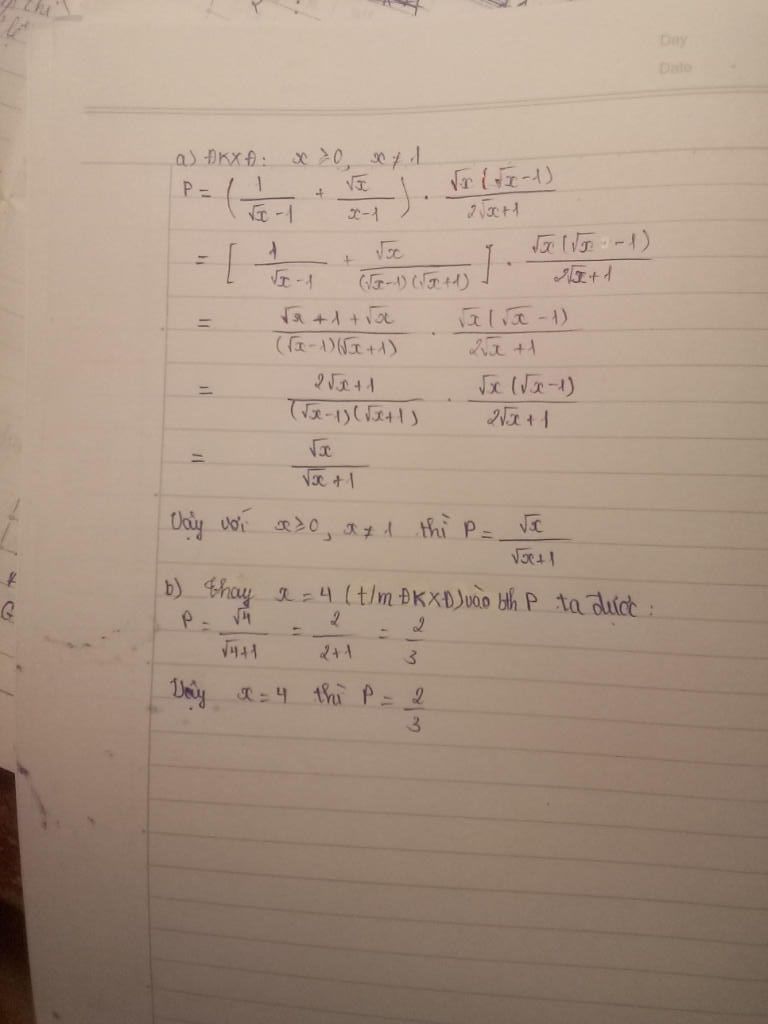 Day
Date
a) ĐKXĐ: x ≥ 0, x ≠ 1
P = ( 1/(√x - 1) + √x/(x - 1) ) . √x (√x - 1)/(2√x + 1)
= [ 1/(√x - 1) + √x/((√x - 1)(√x + 1)) ] . √x (√x - 1)/(2√x + 1)
= (√x + 1 + √x)/((√x - 1)(√x + 1)) . √x (√x - 1)/(2√x + 1)
= (2√x + 1)/((√x - 1)(√x + 1)) . √x (√x - 1)/(2√x + 1)
= √x/(√x + 1)
Vậy với x ≥ 0, x ≠ 1 thì P = √x/(√x + 1)
b) Thay x = 4 (t/m ĐKXĐ) vào bth P ta được:
P = √4/(√4 + 1) = 2/(2 + 1) = 2/3
Vậy x = 4 thì P = 2/3